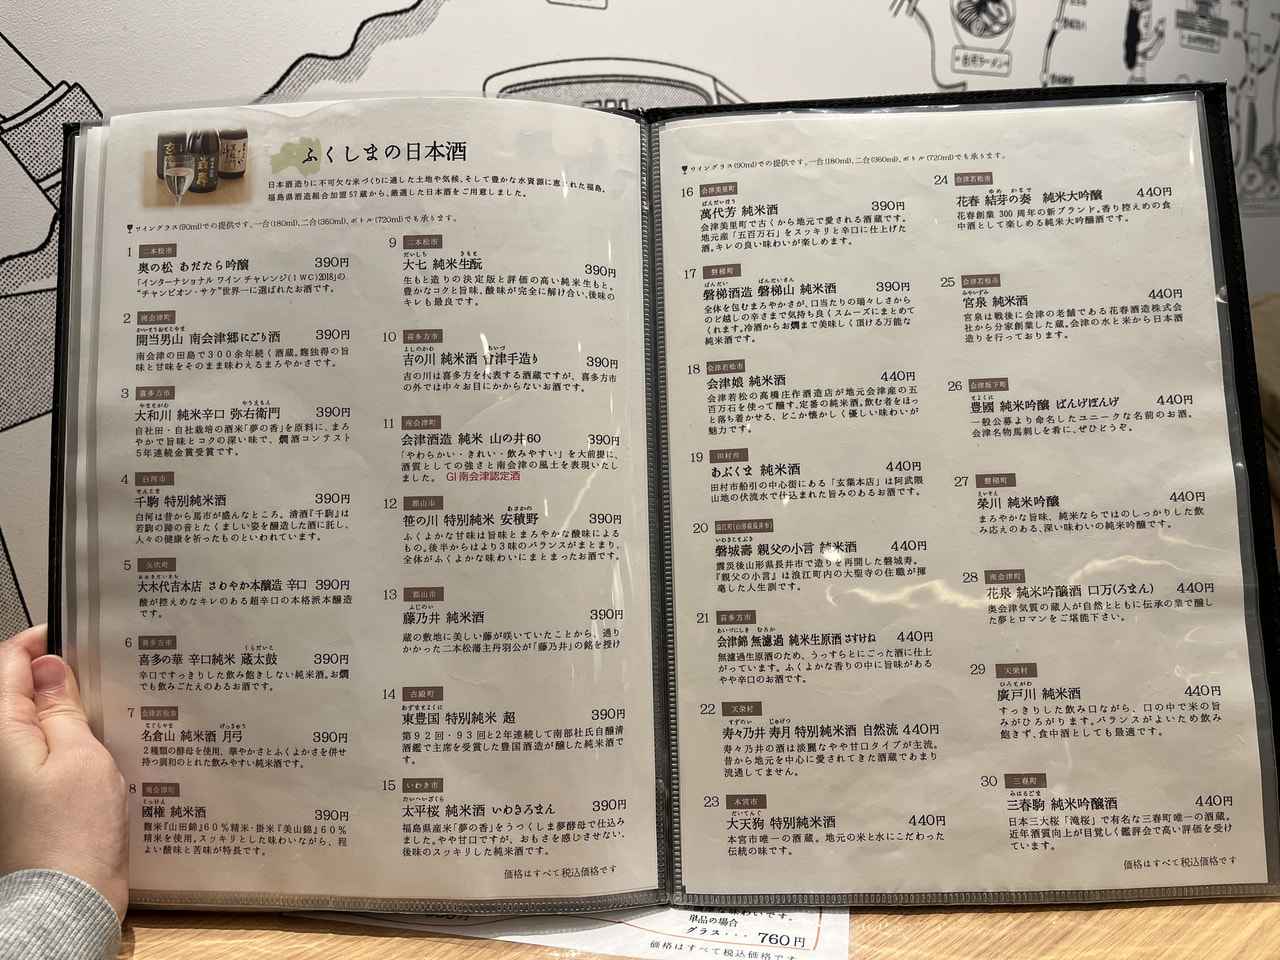 ふくしまの日本酒
日本酒造りに不可欠な米づくりに適した土地や気候、そして豊かな水資源に恵まれた福島。
福島県酒造組合加盟57蔵から、厳選した日本酒をご用意しました。
ワイングラス(90ml)での提供です。一合(180ml)、二合(360ml)、ボトル(720ml)でも承ります。
1 二本松市
奥の松 あだたら吟醸 390円
「インターナショナル ワイン チャレンジ(IWC)2018」の
“チャンピオン・サケ”世界一に選ばれたお酒です。
2 南会津町
かいとうおとこやま
開当男山 南会津郷にごり酒 390円
南会津の田島で300余年続く酒蔵。麹独特の旨
味と甘味をそのまま味わえるまろやかさです。
3 喜多方市
やまとがわ やうえもん
大和川 純米辛口 弥右衛門 390円
自社田・自社栽培の酒米「夢の香」を原料に、まろ
やかで旨味とコクの深い味で、燗酒コンテスト
5年連続金賞受賞です。
4 白河市
せんこま
千駒 特別純米酒 390円
白河は昔から馬市が盛んなところ。清酒『千駒』は
若駒の蹄の音とたくましい姿を醸造した酒に託し、
人々の健康を祈ったものといわれています。
5 矢吹町
おおきだいきち
大木代吉本店 さわやか本醸造 辛口 390円
酸が控えめなキレのある超辛口の本格派本醸造
です。
6 喜多方市
くらだいこ
喜多の華 辛口純米 蔵太鼓 390円
辛口ですっきりした飲み飽きしない純米酒。お燗
でも飲みごたえのあるお酒です。
7 会津若松市
なぐらやま げっきゅう
名倉山 純米酒 月弓 390円
2種類の酵母を使用、華やかさとふくよかさを併せ
持つ調和のとれた飲みやすい純米酒です。
8 南会津町
こっけん
國権 純米酒 390円
麹米『山田錦』60%精米・掛米『美山錦』60%
精米を使用。スッキリとした味わいながら、程
よい酸味と苦味が特長です。
9 二本松市
だいしち きもと
大七 純米生酛 390円
生もと造りの決定版と評価の高い純米生もと。
豊かなコクと旨味、酸味が完全に解け合い、後味の
キレも最良です。
10 喜多方市
よしのかわ あいづ
吉の川 純米酒 會津手造り 390円
吉の川は喜多方を代表する酒蔵ですが、喜多方市
の外では中々お目にかからないお酒です。
11 南会津町
会津酒造 純米 山の井60 390円
「やわらかい・きれい・飲みやすい」を大前提に、
酒質としての強さと南会津の風土を表現いたし
ました。 GI 南会津認定酒
12 郡山市
あさかの
笹の川 特別純米 安積野 390円
ふくよかな甘味は旨味とまろやかな酸味による
もの。後半からはより3味のバランスがまとまり、
全体がふくよかな味わいにまとまったお酒です。
13 郡山市
ふじのい
藤乃井 純米酒 390円
蔵の敷地に美しい藤が咲いていたことから、通り
かかった二本松藩主丹羽公が「藤乃井」の銘を授け
14 古殿町
あずまとよくに
東豊国 特別純米 超 390円
第92回・93回と2年連続して南部杜氏自醸清
酒鑑で主席を受賞した豊国酒造が醸した純米酒で
す。
15 いわき市
たいへいざくら
太平桜 純米酒 いわきろまん 390円
福島県産米「夢の香」をうつくしま夢酵母で仕込み
ました。やや甘口ですが、おもさを感じさせない、
後味のスッキリした純米酒です。
価格はすべて税込価格です
ワイングラス(90ml)での提供です。一合(180ml)、二合(360ml)、ボトル(720ml)でも承ります。
16 会津美里町
ばんだいほう
萬代芳 純米酒 390円
会津美里町で古くから地元で愛される酒蔵です。
地元産「五百万石」をスッキリと辛口に仕上げた
酒。キレの良い味わいが楽しめます。
17 磐梯町
ばんだい ばんだいさん
磐梯酒造 磐梯山 純米酒 390円
全体を包むまろやかさが、口当たりの瑞々しさから
のど越しの辛さまで気持ち良くスムーズにまとめて
くれます。冷酒からお燗まで美味しく頂ける万能な
純米酒です。
18 会津若松市
会津娘 純米酒 440円
会津若松の高橋庄作酒造店が地元会津産の五
百万石を使って醸す、定番の純米酒。飲む者をほっ
と落ち着かせる、どこか懐かしく優しい味わいが
魅力です。
19 田村市
あぶくま 純米酒 440円
田村市船引の中心街にある「玄葉本店」は阿武隈
山地の伏流水で仕込まれた旨みのあるお酒です。
20 浪江町(山形県長井市)
いわきことぶき
磐城壽 親父の小言 純米酒 440円
震災後山形県長井市で造りを再開した磐城寿。
『親父の小言』は浪江町内の大聖寺の住職が揮
毫した人生訓です。
21 喜多方市
あいづにしき むろか
会津錦 無濾過 純米生原酒 さすけね 440円
無濾過生原酒のため、うっすらとにごった酒に仕上
がっています。ふくよかな香りの中に旨味がある
やや辛口のお酒です。
22 天栄村
すずのい じゅげつ
寿々乃井 寿月 特別純米酒 自然流 440円
寿々乃井の酒は淡麗なやや甘口タイプが主流。
昔から地元を中心に愛されてきた酒蔵であまり
流通してません。
23 本宮市
だいてんぐ
大天狗 特別純米酒 440円
本宮市唯一の酒蔵。地元の米と水にこだわった
伝統の味です。
24 会津若松市
ゆめ かなで
花春 結芽の奏 純米大吟醸 440円
花春創業300周年の新ブランド。香り控えめの食
中酒として楽しめる純米大吟醸酒です。
25 会津若松市
みやいずみ
宮泉 純米酒 440円
宮泉は戦後に会津の老舗である花春酒造株式会
社から分家創業した蔵。会津の水と米から日本酒
造りを行っております。
26 会津坂下町
とよくに
豊國 純米吟醸 ばんげぼんげ 440円
一般公募より命名したユニークな名前のお酒。
会津名物馬刺しを肴に、ぜひどうぞ。
27 磐梯町
えいせん
榮川 純米吟醸 440円
まろやかな旨味、純米ならではのしっかりした飲
み応えのある、深い味わいの純米吟醸です。
28 南会津町
花泉 純米吟醸酒 口万(ろまん) 440円
奥会津気質の蔵人が自然とともに伝承の業で醸し
た夢とロマンをご堪能下さい。
29 天栄村
ひろとがわ
廣戸川 純米酒 440円
すっきりした飲み口ながら、口の中で米の旨
みがひろがります。バランスがよいため飲み
飽きず、食中酒としても最適です。
30 三春町
みはるごま
三春駒 純米吟醸酒 440円
日本三大桜「滝桜」で有名な三春町唯一の酒蔵。
近年酒質向上が目覚しく鑑評会で高い評価を受け
ています。
価格はすべて税込価格です
単品の場合
グラス・・・ 760円
価格はすべて税込価格です